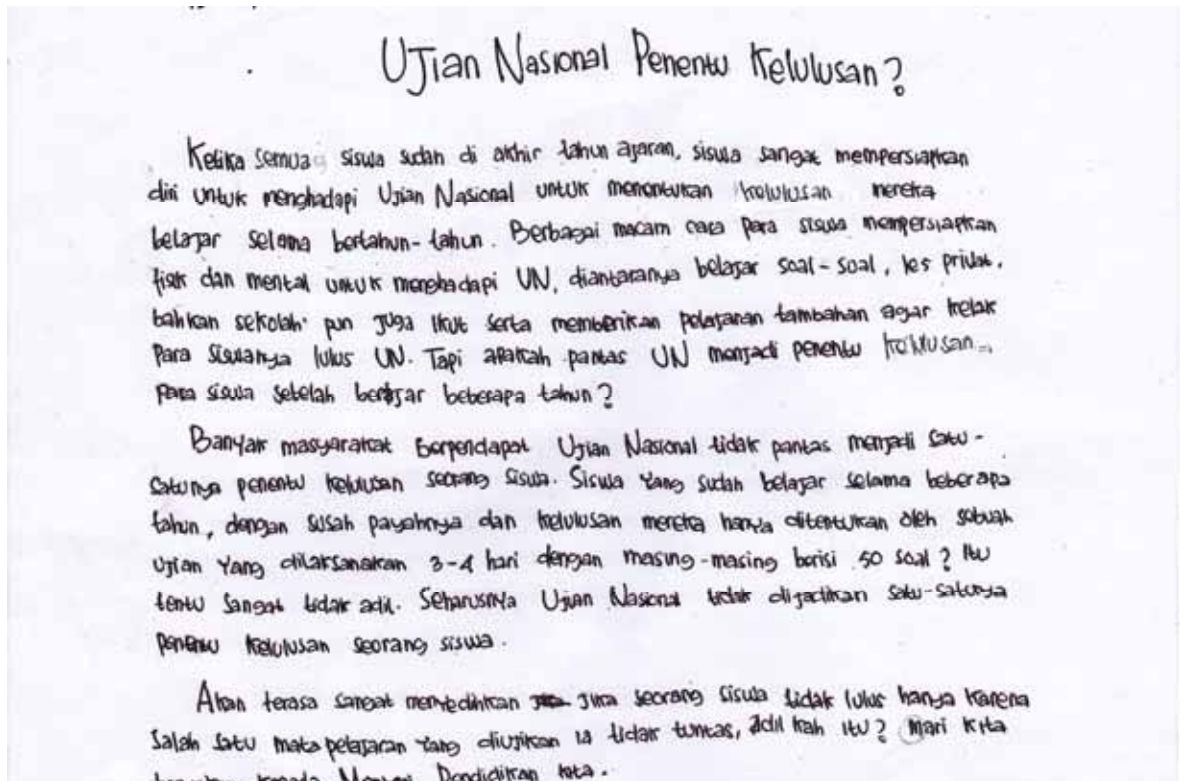 Ujian Nasional Penentu Kelulusan?
Ketika semua siswa sudah di akhir tahun ajaran, siswa sangat mempersiapkan
diri untuk menghadapi Ujian Nasional untuk menentukan kelulusan mereka
belajar selama bertahun-tahun. Berbagai macam cara para siswa mempersiapkan
fisik dan mental untuk menghadapi UN, diantaranya belajar soal-soal, les privat,
bahkan sekolah pun juga ikut serta memberikan pelajaran tambahan agar kelak
para siswanya lulus UN. Tapi apakah pantas UN menjadi penentu kelulusan
para siswa setelah belajar beberapa tahun?
Banyak masyarakat berpendapat Ujian Nasional tidak pantas menjadi satu-
satunya penentu kelulusan seorang siswa. Siswa yang sudah belajar selama beberapa
tahun, dengan susah payahnya dan kelulusan mereka hanya ditentukan oleh sebuah
ujian yang dilaksanakan 3-4 hari dengan masing-masing berisi 50 soal? Itu
tentu sangat tidak adil. Seharusnya Ujian Nasional tidak dijadikan satu-satunya
penentu kelulusan seorang siswa.
Akan terasa sangat menyedihkan jika seorang siswa tidak lulus hanya karena
salah satu mata pelajaran yang diujikan ia tidak tuntas, adil kah itu? Mari kita
kepada Menteri Pendidikan kita.